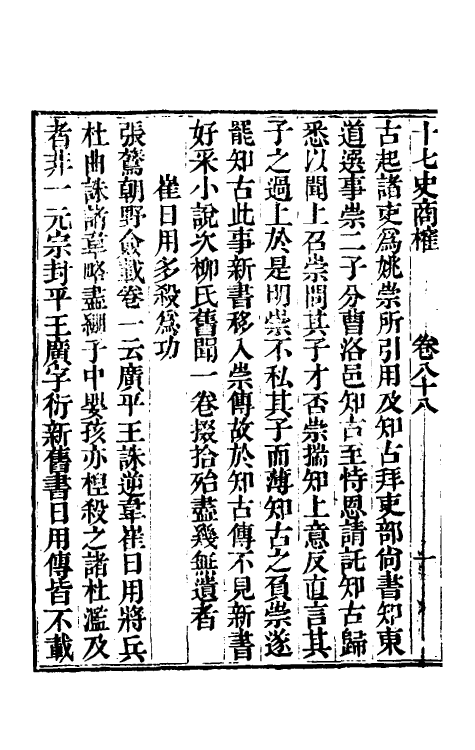 十七史商榷　卷八十八　十
古起諸吏爲姚崇所引用及知古拜吏部尚書知東
道選事崇二子分曹洛邑知古至恃恩請託知古歸
悉以聞上召崇問其子才否崇揣知上意反直言其
子之過上於是明崇不私其子而薄知古之負崇遂
罷知古此事新書移入崇傳故於知古傳不見新書
好采小說次柳氏舊聞一卷掇拾殆盡幾無遺者
崔日用多殺爲功
張鷟朝野僉載卷一云廣平王誅逆韋崔日用將兵
杜曲誅諸韋略盡綳子中嬰孩亦桯殺之諸杜濫及
者非一元宗封平王廣字衍新舊書日用傳皆不載